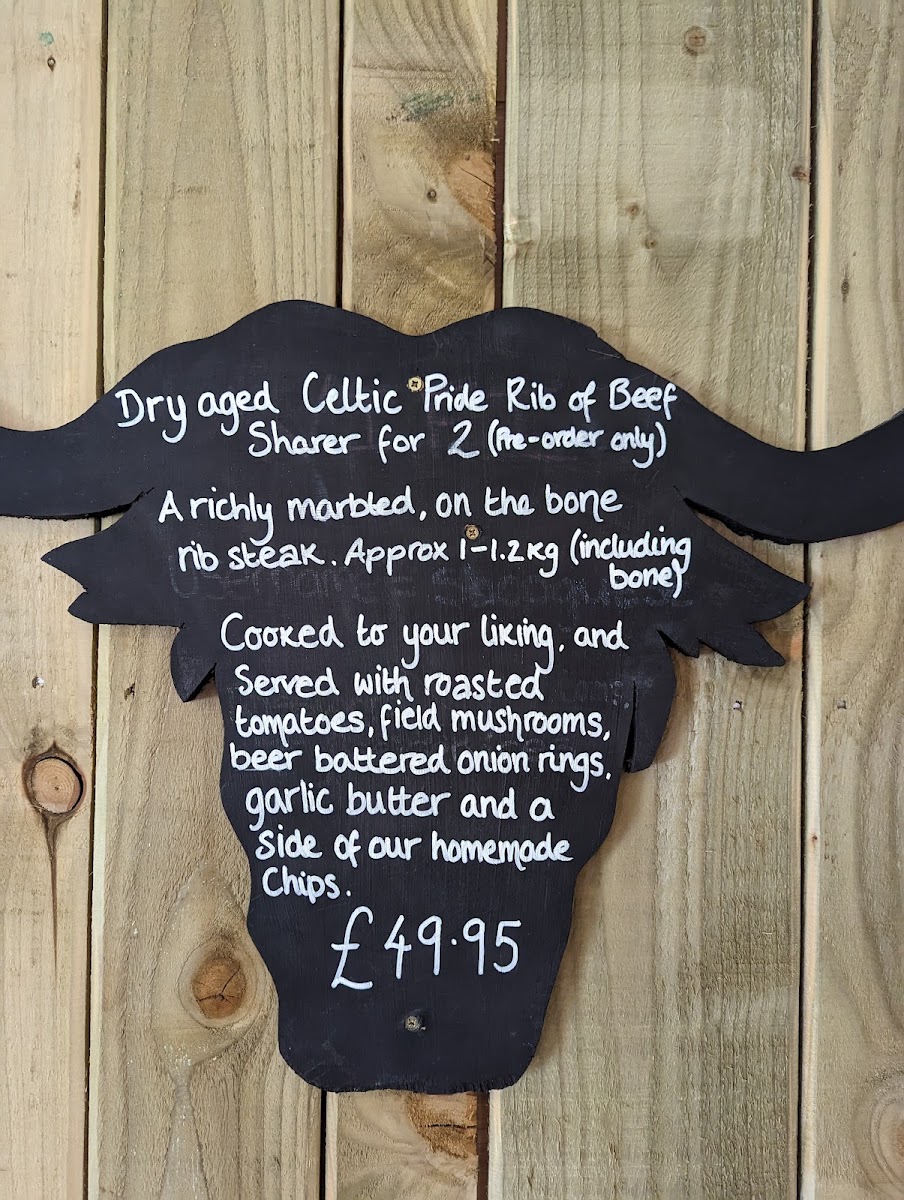 Dry aged Celtic Pride Rib of Beef
Sharer for 2 (Pre-order only)
A richly marbled, on the bone
rib steak. Approx 1-1.2kg (including
bone)
Cooked to your liking, and
Served with roasted
tomatoes, field mushrooms,
beer battered onion rings,
garlic butter and a
side of our homemade
Chips.
£49.95